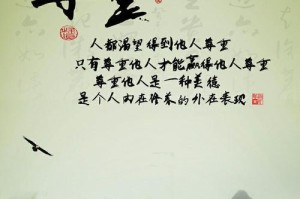 尊重
人都渴望得到他人尊重
只有尊重他人才能赢得他人尊重
尊重他人是一种美德
是个人内在修养的外在表现